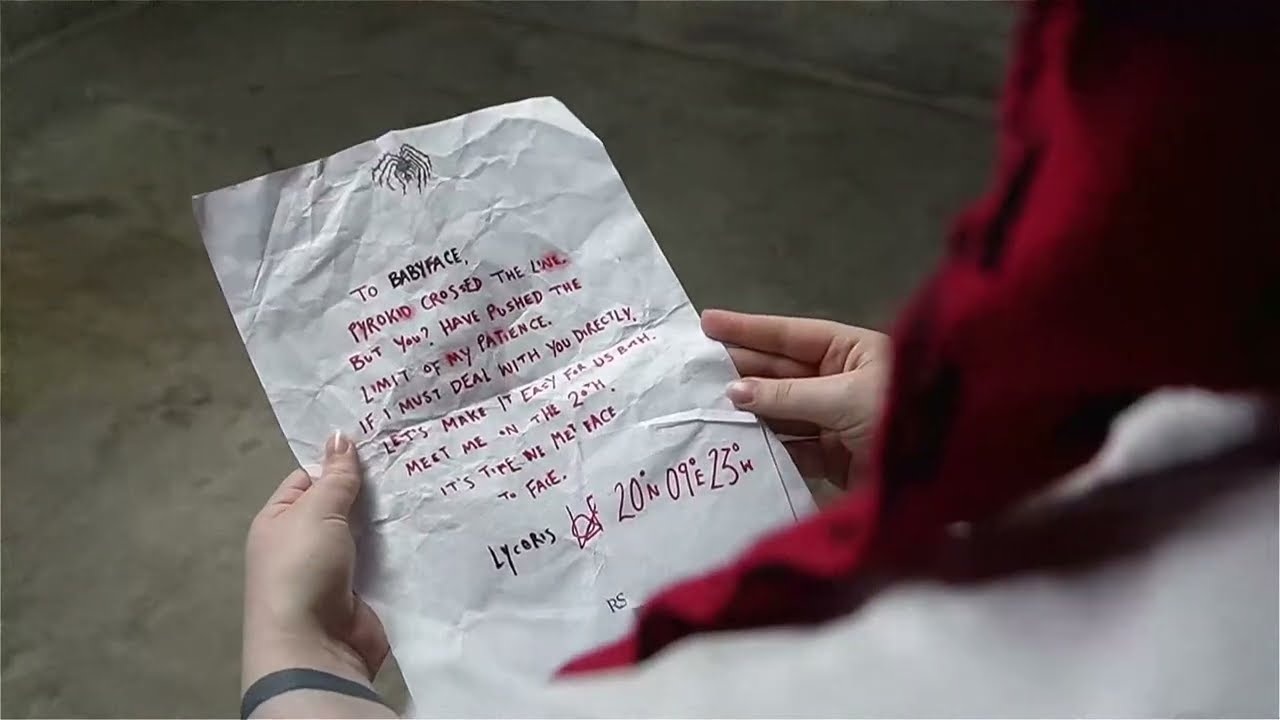 TO BABYFACE,
PYROKID CROSSED THE LINE.
BUT YOU? HAVE PUSHED THE
LIMIT OF MY PATIENCE.
IF I MUST DEAL WITH YOU DIRECTLY.
LET'S MAKE IT EASY FOR US BOTH.
MEET ME ON THE 20TH.
IT'S TIME WE MET FACE
TO FACE.
LYCORIS 20°N 09°E 23°W
RS